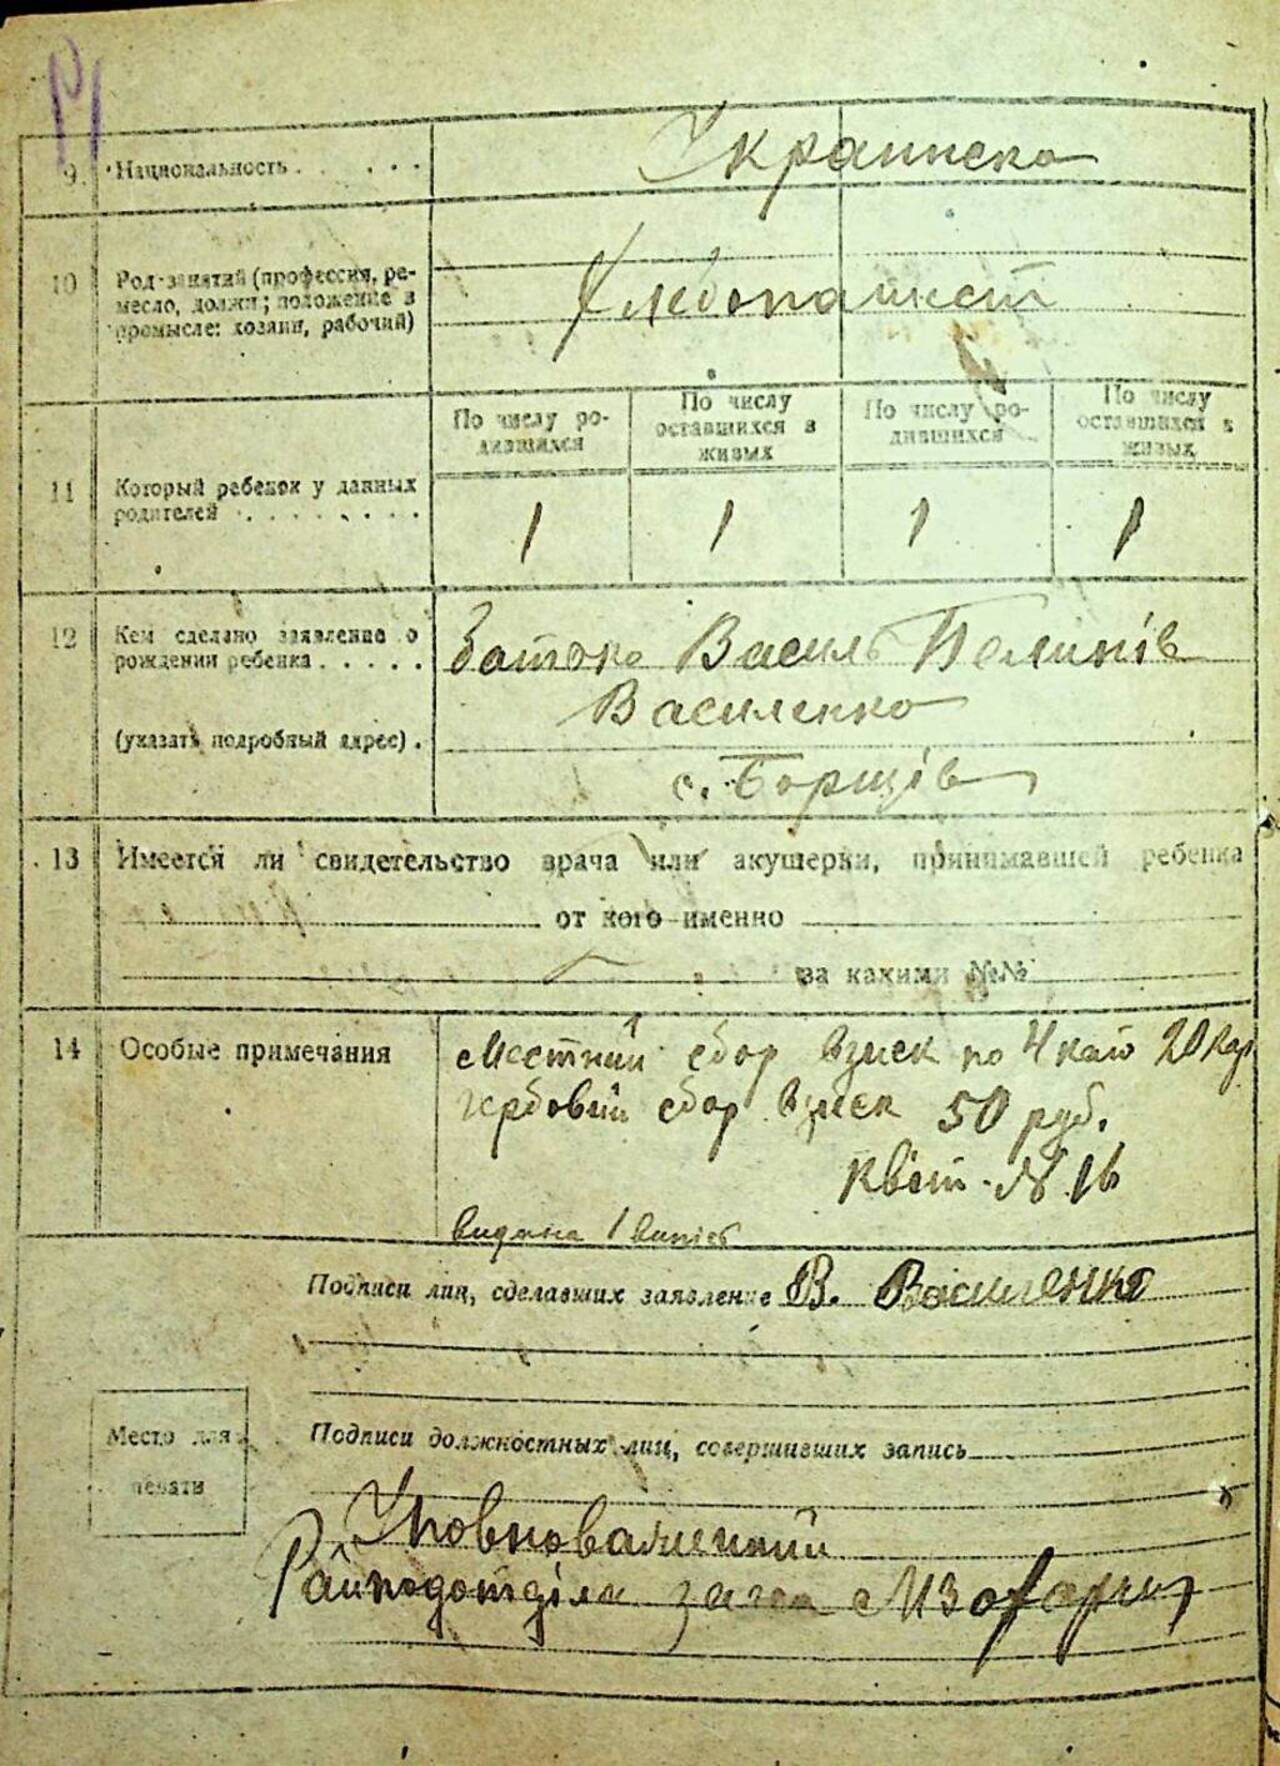 9. Национальность . . . . . Украинска
10 Род занятий (профессия, ре-
месло, должн; положение в
промысле: хозяин, рабочий)
Хлебопашест
По числу ро-
дившихся
По числу
оставшихся в
живых
По числу ро-
дившихся
По числу
оставшихся в
живых
11 Который ребенок у данных
родителей . . . . . . . .
1 1 1 1
12 Кем сделано заявление о
рождении ребенка . . . . .
Батько Василь
Василенко
(указать подробный адрес) .
с. Борщів
13 Имеется ли свидетельство врача или акушерки, принимавшей ребенка
от кого именно
за какими №№
14 Особые примечания
Местний сбор взиск по 4 20
гербовий сбор взиск 50 руб.
Квит. № 16
видана 1 випіс
Подписи лиц, сделавших заявление В. Василенко
Место для
печати
Подписи должностных лиц, совершивших запись
Уповноважений
Райподотділа загса